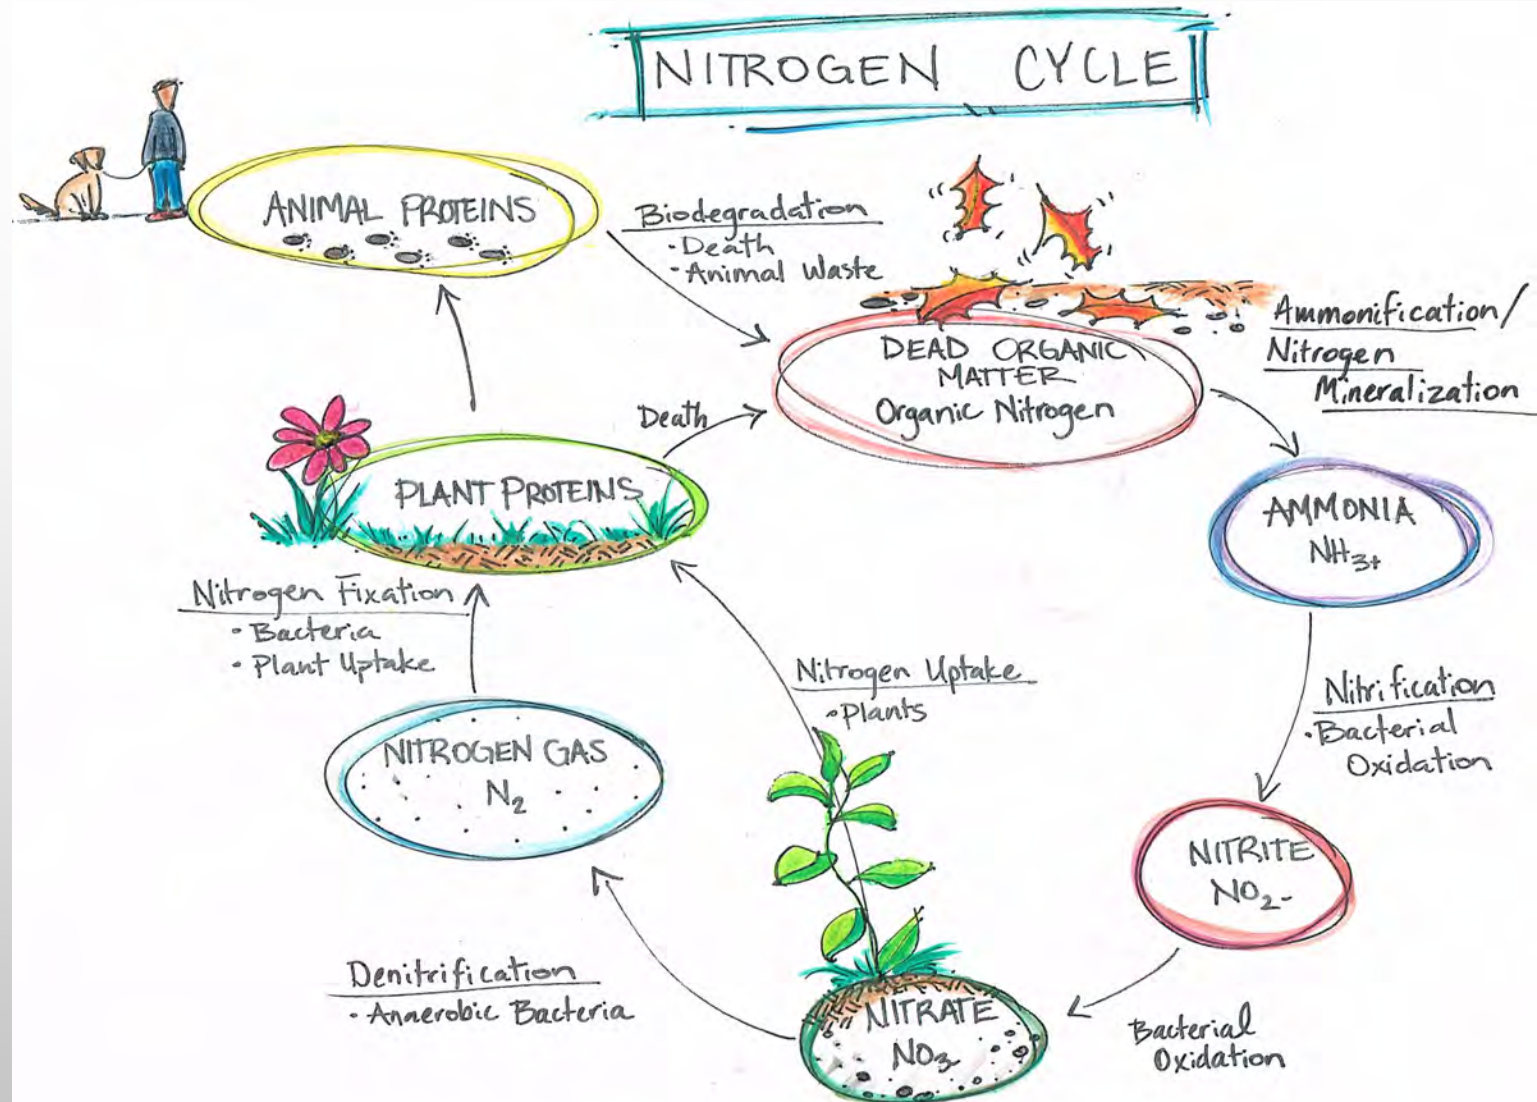 NITROGEN CYCLE
ANIMAL PROTEINS
Biodegradation
• Death
• Animal Waste
DEAD ORGANIC
MATTER
Organic Nitrogen
Ammonification/
Nitrogen
Mineralization
Death
PLANT PROTEINS
AMMONIA
NH3+
Nitrogen Fixation
• Bacteria
• Plant Uptake
Nitrogen Uptake
• Plants
Nitrification
• Bacterial
Oxidation
NITROGEN GAS
N2
NITRITE
NO2-
Denitrification
• Anaerobic Bacteria
NITRATE
NO3-
Bacterial
Oxidation